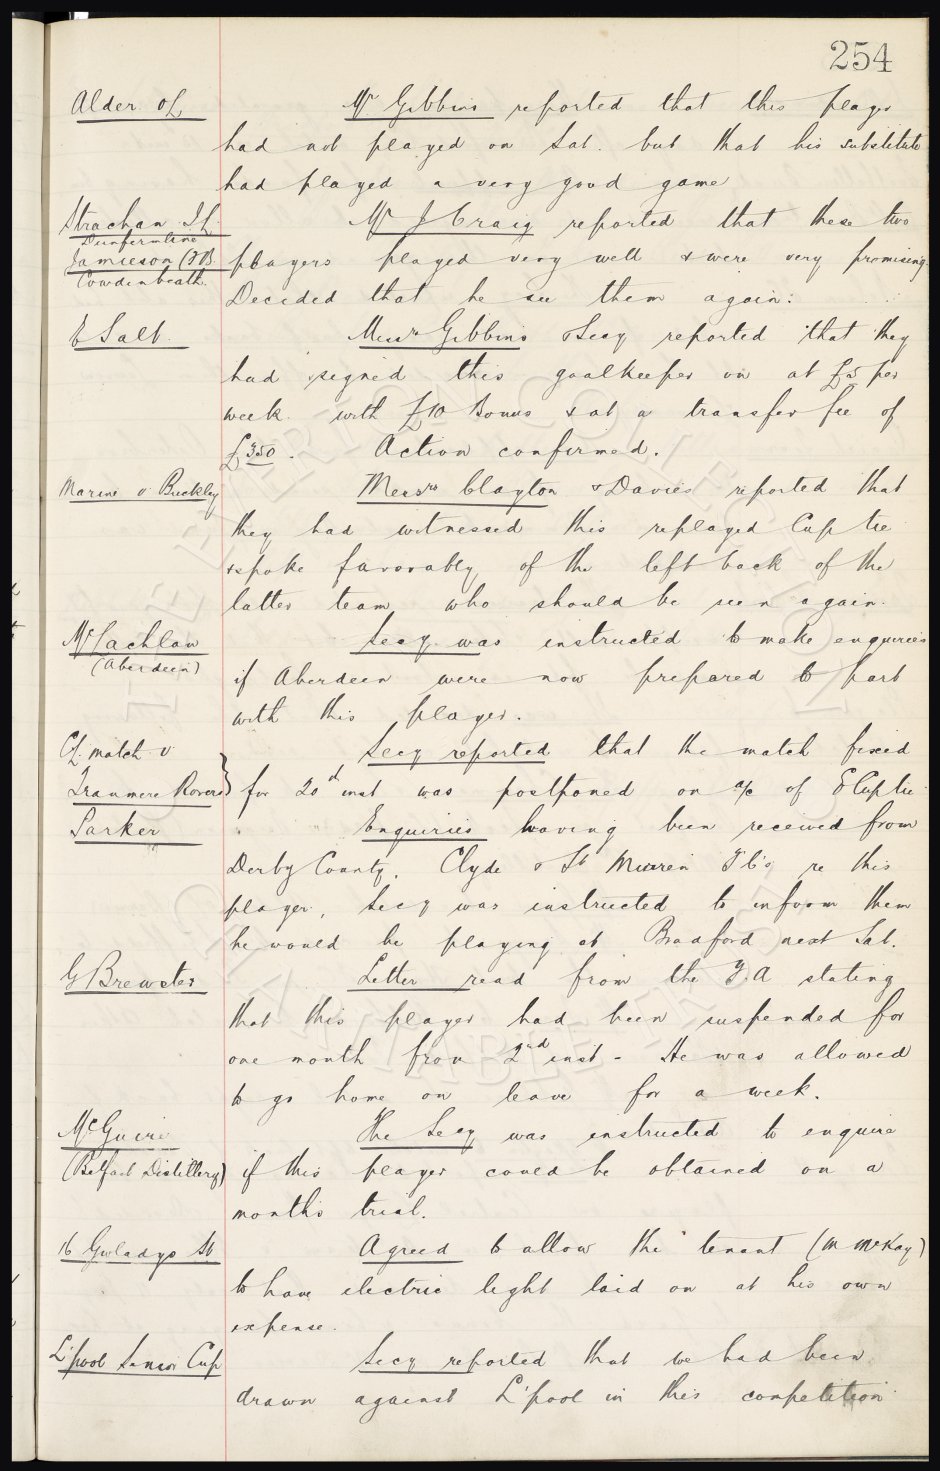 254
Alder. OL Mr Gibbins reported that this player
had not played on Sat. but that his substitute
had played a very good game
Strachan IL Mr J Craig reported that these two
Dunfermline
Jamieson (RB players played very well & were very promising.
Cowdenbeath.
Decided that he see them again.
E Salt. Messrs Gibbins & Secy reported that they
had signed this goalkeeper on at £5 per
week with £10 Bonus & at a transfer fee of
£350. Action confirmed.
Marine v Buckley Messrs Clayton & Davies reported that
they had witnessed this replayed Cup tie
& spoke favorably of the left back of the
latter team who should be seen again.
McLachlan Secy was instructed to make enquiries
(Aberdeen)
if Aberdeen were now prepared to part
with this player.
CL match v Secy reported that the match fixed
Tranmere Rovers for 20th inst was postponed on a/c of E Cup tie
Parker Enquiries having been received from
Derby County, Clyde & St Mirren F.C's re this
player, Secy was instructed to inform them
he would be playing at Bradford next Sat.
G Brewster Letter read from the F.A stating
that this player had been suspended for
one month from 2nd inst - He was allowed
to go home on leave for a week.
McGuire The Secy was instructed to enquire
(Belfast Distillery) if this player could be obtained on a
month's trial.
16 Gwladys St Agreed to allow the tenant (M McKay)
to have electric light laid on at his own
expense.
L'pool Senior Cup Secy reported that we had been
drawn against L'pool in this competition